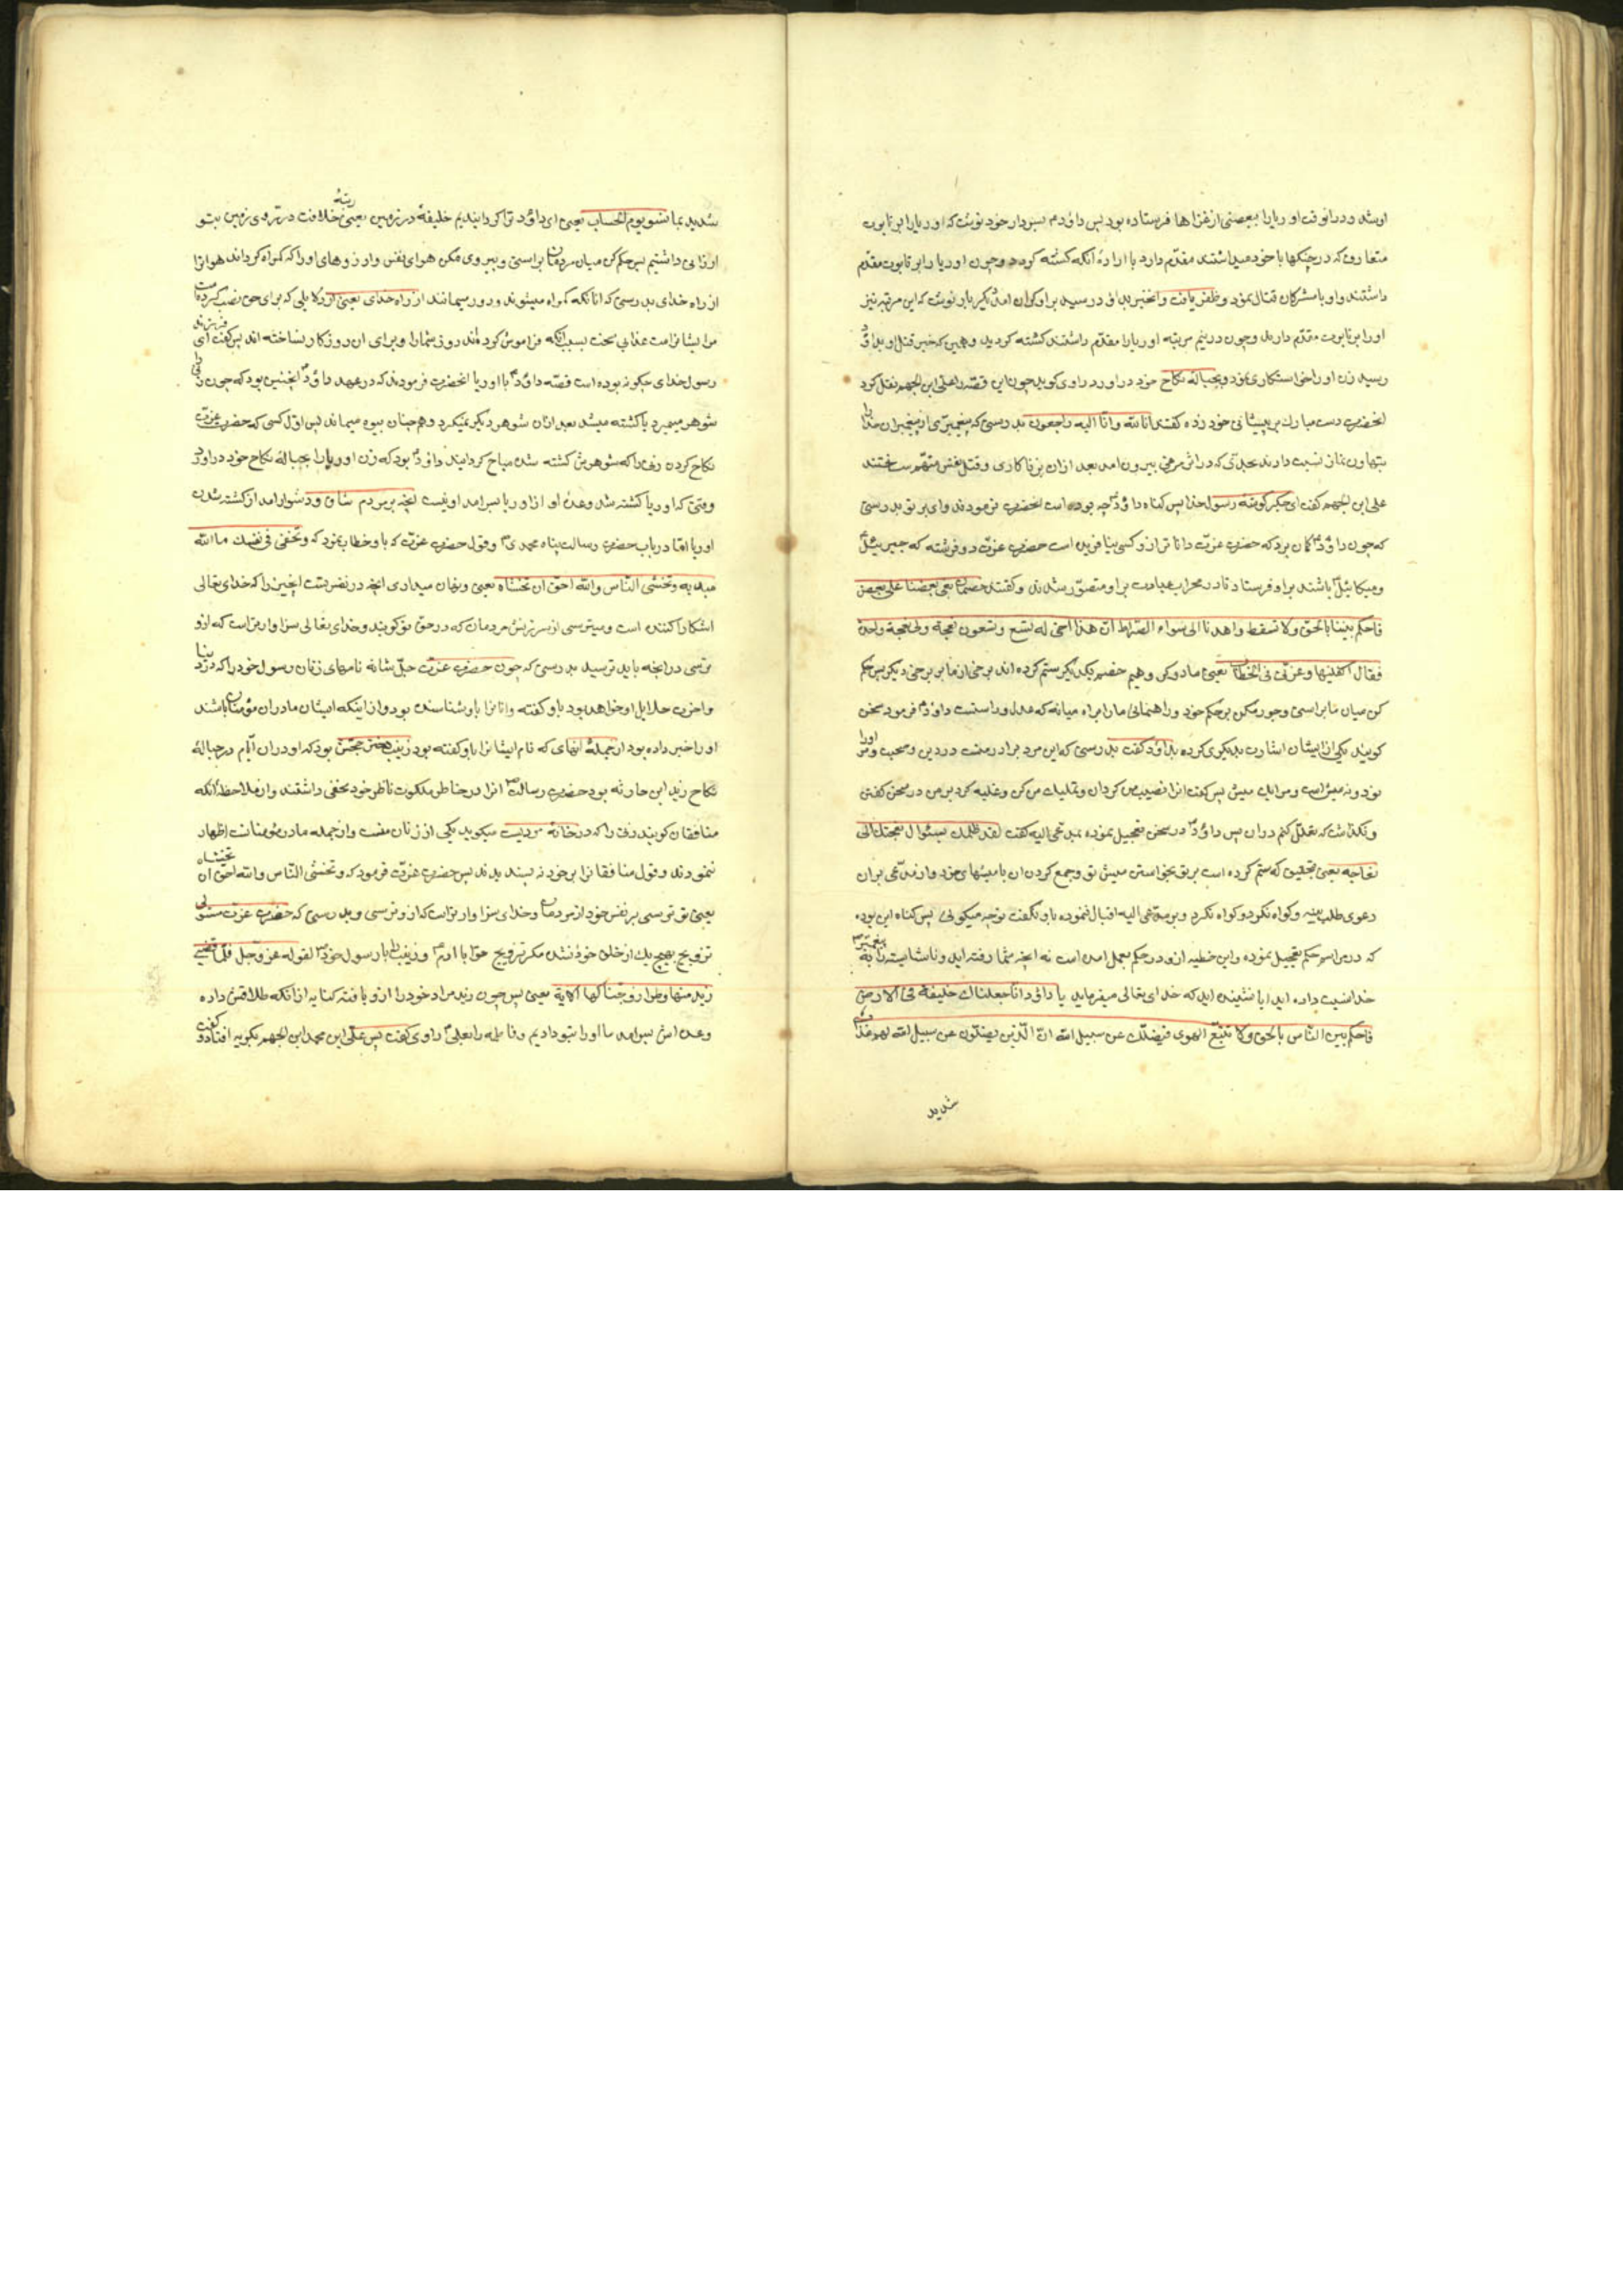 او شد و در انوقت اوریا را ببعضی از غزاها فرستاده بود پس داؤد ع بسردار خود نوشت که اوریا را بر تابوت
متعارف که در جنکها با خود میداشتند مقدّم دارد با ارادهٔ آنکه کشته کردد و چون اوریا را بر تابوت مقدّم
داشتند و او با مشرکان قتال نمود و ظفر یافت و انخبر بداؤد رسید بر او کران امد دیکر بار نوشت که این مرتبه نیز
او را بر تابوت مقدّم دارند و چون درینم مرتبه اوریا را مقدّم داشتند کشته کردید و همین که خبر قتل او بداؤد
رسید زن او را خواستکاری نمود و بحبالهٔ نکاح خود در اورد راوی کوید چون این قصّه را علی ابن الجهم نقل کرد
انحضرت دست مبارک بر پیشانی خود زده کفتند انا لله وانا الیه راجعون بدرستی که پیغمبری از پیغمبران خدا را
بتهاون نماز نسبت دادند بحدّی که در اثر مرغی بیرون امد بعد ازان بزناکاری و قتل نفس متّهم ساختند
علی ابن الجهم کفت ای جکر کوشهٔ رسول خدا پس کناه داؤد ع چه بوده است انحضرت فرمودند وای بر تو بدرستی
که چون داؤد ع کمان برد که حضرت عزّت دانا تر ازو کسی نیافریده است حضرت عزّت دو فرشته که جبرئیل ع
و میکائیل ع باشند براو فرستاد تا در محراب عبادت براو متصوّر شدند و کفتند خصمان بغی بعضنا علی بعض
فاحکم بیننا بالحق ولا تشطط واهدنا الی سواء الصّراط انّ هذا اخی له تسع وتسعون نعجة ولی نعجة واحدة
فقال اکفلنیها وعزّنی فی الخطاب یعنی ما دو کس و هیم خصم یکدیکر ستم کرده اند برخی از ما بر برخی دیکر پس حکم
کن میان ما براستی و جور مکن بر حکم خود و راهنمائی ما را براه میانه که عدل و راستیت داؤد ع فرمود سخن
کویید یکی از ایشان اشارت بدیکری کرده بداؤد کفت بدرستی که این مرد برادر منت در دین و صحبت و مر او را
نود و نه میش است و مرا یک میش پس کفت انرا نصیب من کردان و تملیک من کن و غلبه کرد بر من در سخن کفتن
و نکذاشت که تعلّل کنم دران پس داؤد ع در سخن تعجیل نموده بمدعی الیه کفت لقد ظلمک بسؤال نعجتک الی
نعاجه یعنی بتحقیق که ستم کرده است بر تو بخواستن میش تو و جمع کردن ان با میشهای خود و از مدّعی بران
دعوی طلب بینه و کواه نکرد و کواه نکرد و بر مدّعی الیه اقبال ننموده باو نکفت تو چه میکوئی پس کناه این بوده
که در مراسم حکم تعجیل نموده و این خطیه ازو در حکم بعمل امده است نه انچه شما رفته اید و ناشایسته را به پیغمبر
خدا نسبت داده اید ایا نشنیده اید که خدای تعالی میفرماید یا داؤد انا جعلناک خلیفة فی الارض
فاحکم بین النّاس بالحق ولا تتّبع الهوی فیضلّک عن سبیل الله انّ الّذین یضلّون عن سبیل الله لهم عذاب
شدید
شدید بما نسو یوم الحساب یعنی ای داؤد ترا کردانیدیم خلیفهٔ در زمین یعنی رتبهٔ خلافت در روی زمین بتو
ارزانی داشتیم پس حکم کن میان مردمان براستی و پیروی مکن هوای نفس و ارزوهای او را که کمراه کرداند هوا ترا
از راه خدای بدرستی که انانکه کمراه میشوند و دور میمانند از راه خدای یعنی از دلایلی که برای حق نصب کرده است
مر ایشانراست عذابی سخت بسبب انکه فراموش کرده اند روز شمار را و برای ان روز کار نساخته اند پس کفت ای فرزند
رسول خدای چکونه بوده است قصّه داؤد ع با اوریا انحضرت فرمودند که در عهد داؤد ع انچنین بود که چون زنی را
شوهر میمرد یا کشته میشد بعد ازان شوهر دیکر نمیکرد و همچنان بیوه میماند پس اوّل کسی که حضرت عزّت
نکاح کردن زنی را که شوهرش کشته شده مباح کردانید داؤد ع بود که زن اوریا را بحبالهٔ نکاح خود در اورد
وقتی که اوریا کشته شد و عدهٔ او از اوریا بسر امد اونست انچه بر مردم شاق و دشوار امد از کشته شدن
اوریا امّا در باب حضرت رسالت پناه محمدی ص و قول حضرت عزّت که باو خطاب نمود که وتخفی فی نفسک ما الله
مبدیه وتخشی النّاس والله احقّ ان تخشاه یعنی و پنهان میداری انچه در نفس تست انچیز را که خدای تعالی
اشکارا کننده است و میترسی از سرزنش مردمان که در حق تو کویند و خدای تعالی سزاوار تراست که ازو
ترسی در انچه باید ترسید بدرستی که چون حضرت عزّت جلّ شانه نامهای زنان رسول خود را که در دنیا
و اخرت حلایل او خواهد بود باو کفته و انانرا باو شناسنده بود و از اینکه ایشان مادران مؤمنان باشند
او را خبر داده بود از جملهٔ انهای که نام ایشانرا باو کفته بود زینب بنت جحش بود که او دران ایّام در حبالهٔ
نکاح زید ابن حارثه بود حضرت رسالت ص انرا در خاطر ملکوت ناظر خود مخفی داشتند و از ملاحظهٔ انکه
منافقان کویند زنی را که در خانهٔ مردیست میکوید یکی از زنان منست و از جمله مادر مؤمنانست اظهار
ننمودند و قول منافقانرا بر خود نه پسندیدند پس حضرت عزّت فرمود که وتخشی النّاس والله احقّ ان تخشاه
یعنی تو ترسی بر نفس خود از مردمان و خدای سزاوار تراست که ازو ترسی و بدرستی که حضرت عزّت متولّی
تزویج هیچ یک از خلق خود نشده مکر تزویج حوّا با ادم ع و زینب را با رسول خود ص لقوله عز وجل فلمّا قضی
زید منها وطرا زوّجناکها الایة یعنی پس چون زید مراد خود را ازو یافت کنایه از انکه طلاقش داده
و عدهٔ اش بسر امد ما او را بتو دادیم و فاطمه را بعلی ع راوی کفت پس علی ابن محمد ابن الجهم بکریه افتاد و کفت